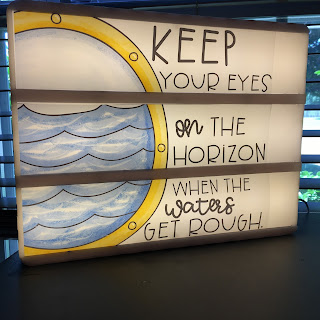 KEEP
YOUR EYES
on THE
HORIZON
WHEN THE
waters
GET ROUGH.